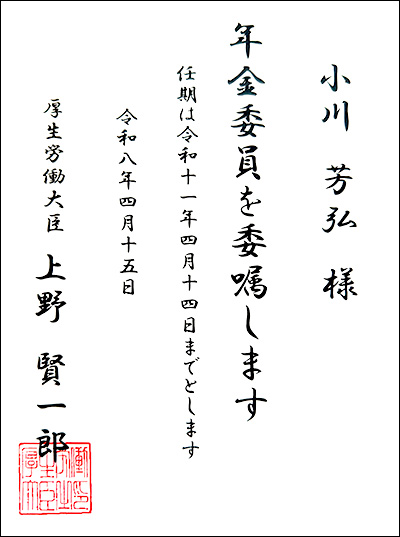 小川 芳弘 様
年金委員を委嘱します
任期は令和十一年四月十四日までとします
令和八年四月十五日
厚生労働大臣 上野 賢一郎